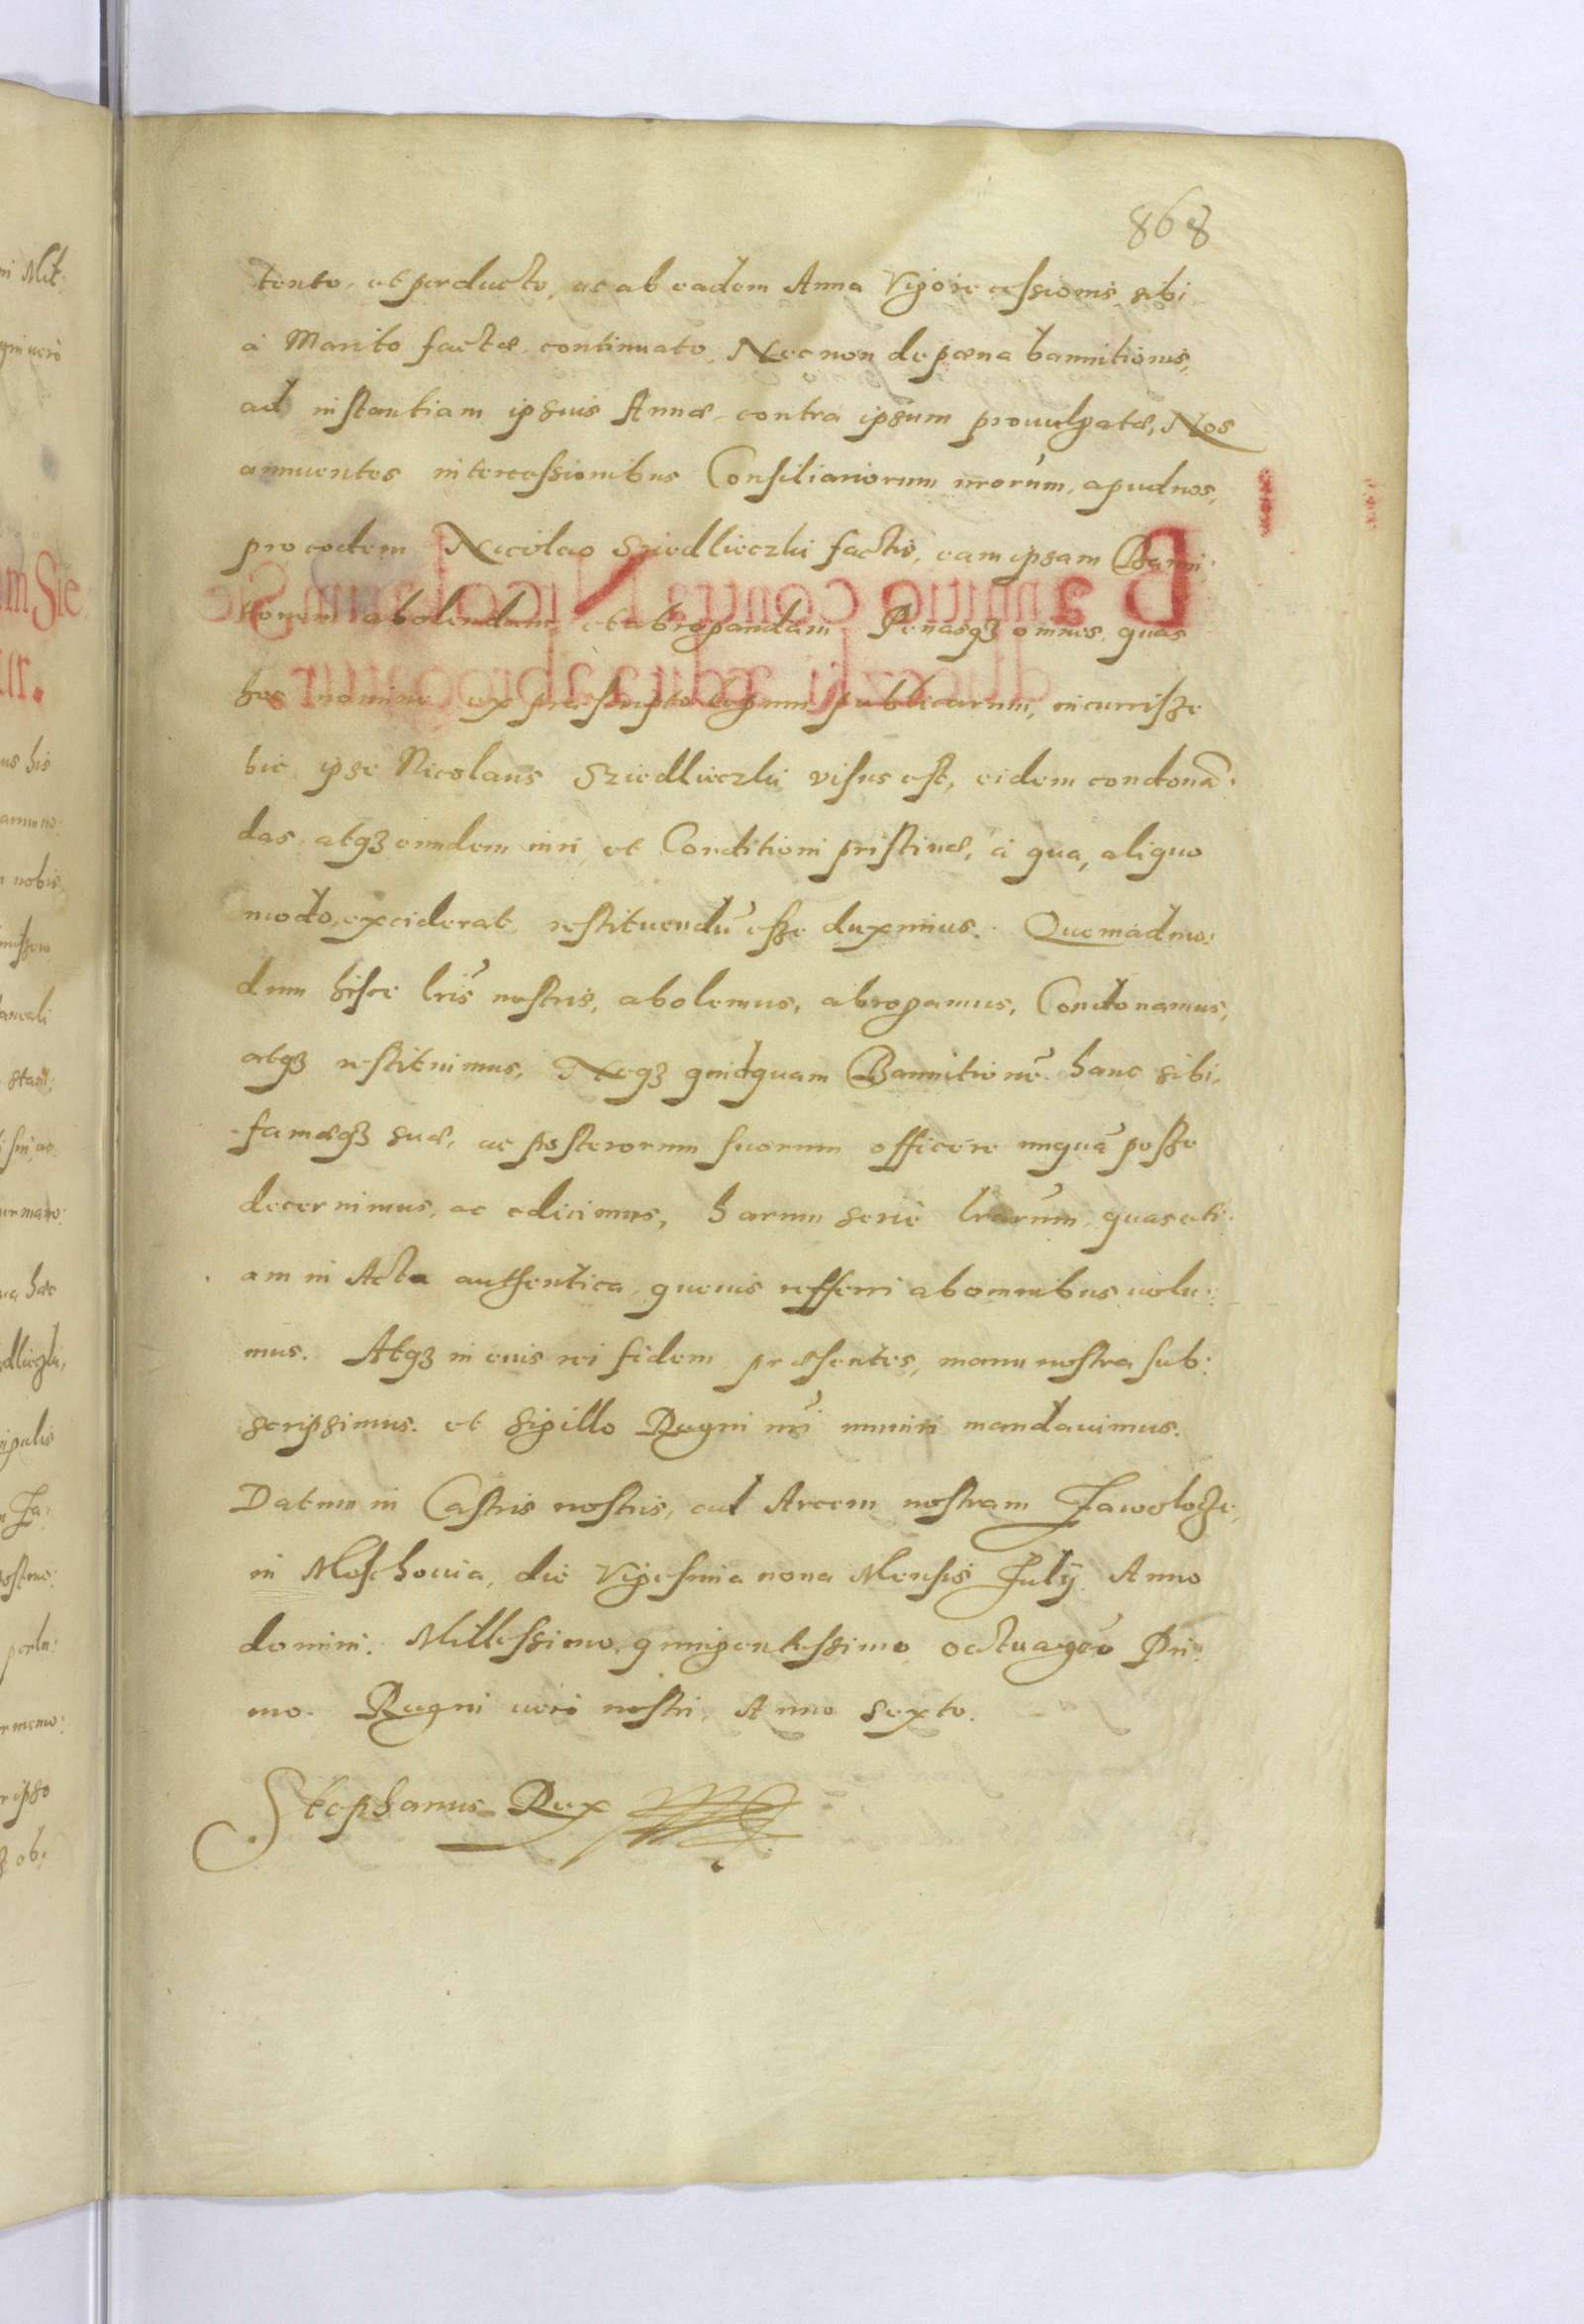 868
tento, et perducto, ac ab eadem Anna Vigore cessionis sibi
à Marito factæ continuato, Nec non de pœna bannitionis,
ad instantiam ipsius Annæ contra ipsum prouulgatæ, Nos
annuentes intercessionibus Consiliariorum nrorum, apud nos,
pro eodem Nicolao Sziedlieczki factis, eam ipsam Banni:
tionem abolendam et abrogandam Penasq3 omnes, quas
hoc nomine ex præscripto legum publicarum, incurrisse
hic ipse Nicolaus Sziedlieczki visus est, eidem condonā:
das atq3 eundem iuri et Conditioni pristinæ, à qua, aliquo
modo exciderat, restituendū esse duximus. Quemadmo:
dum hisce lris nostris, abolemus, abrogamus, Condonamus,
atq3 restituimus, Neq3 quidquam Bannitionē hanc sibi,
famæq3 suæ, ac posterorum suorum officere unquā posse
decernimus, ac edicimus, harum serie lrarum, quas eti:
am in Acta authentica quæuis refferri ab omnibus uolu:
mus. Atq3 in cuius rei fidem præsentes, manu nostra sub:
scripsimus. et Sigillo Regni nri muniri mandauimus.
Datum in Castris nostris, ad Arcem nostram Zawolocze,
in Moschouia, die Vigesima nona Mensis July Anno
domini. Millessimo, quingentessimo octuageō Pri:
mo. Regni uero nostri, Anno Sexto.
Stephanus Rex